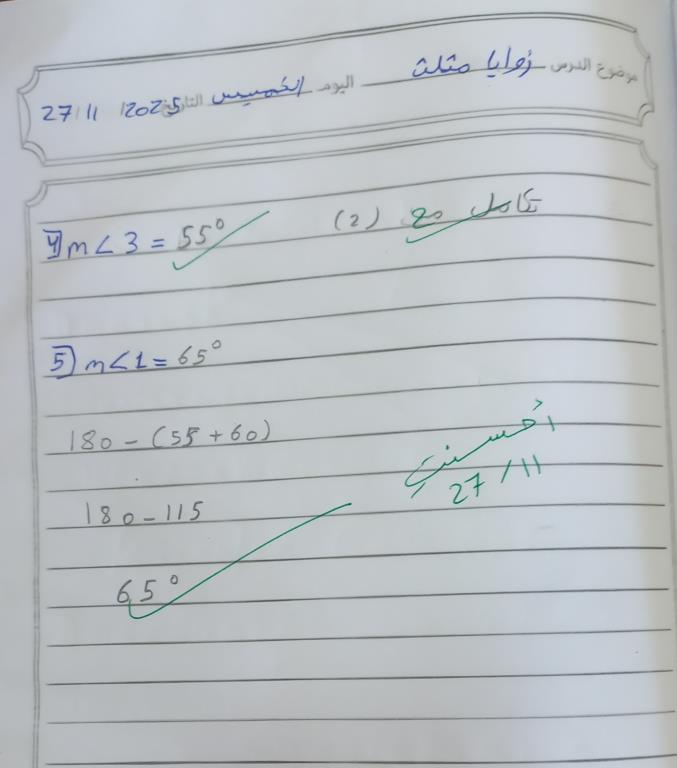 موضوع الدرس زوايا مثلث اليوم الخميس التاريخ 27/11/2025
4) m<3 = 55° (2) تكامل مع
5) m<1 = 65°
180 - (55 + 60)
أحسنتِ
27/11
180 - 115
65°